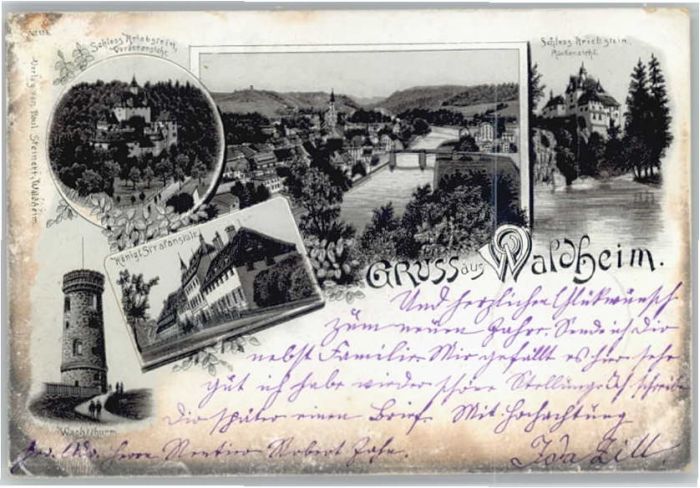 Schloss Kriebstein,
Vorderansicht.
Schloss Kriebstein.
Rückansicht.
Verlag von Paul Steinert, Waldheim.
Königl. Strafanstalt
Wachtthurm.
GRUSS aus Waldheim.
Und herzlichen Glükwünsch
zum neuen Jahre. Sende ich Dir
nebst Familie. Mir gefällt es hier sehr
gut ich habe wieder schöne Stellung. Ich schreibe
Dir später einen Brief. Mit Hochachtung
Herrn Robert
Ida Zill.